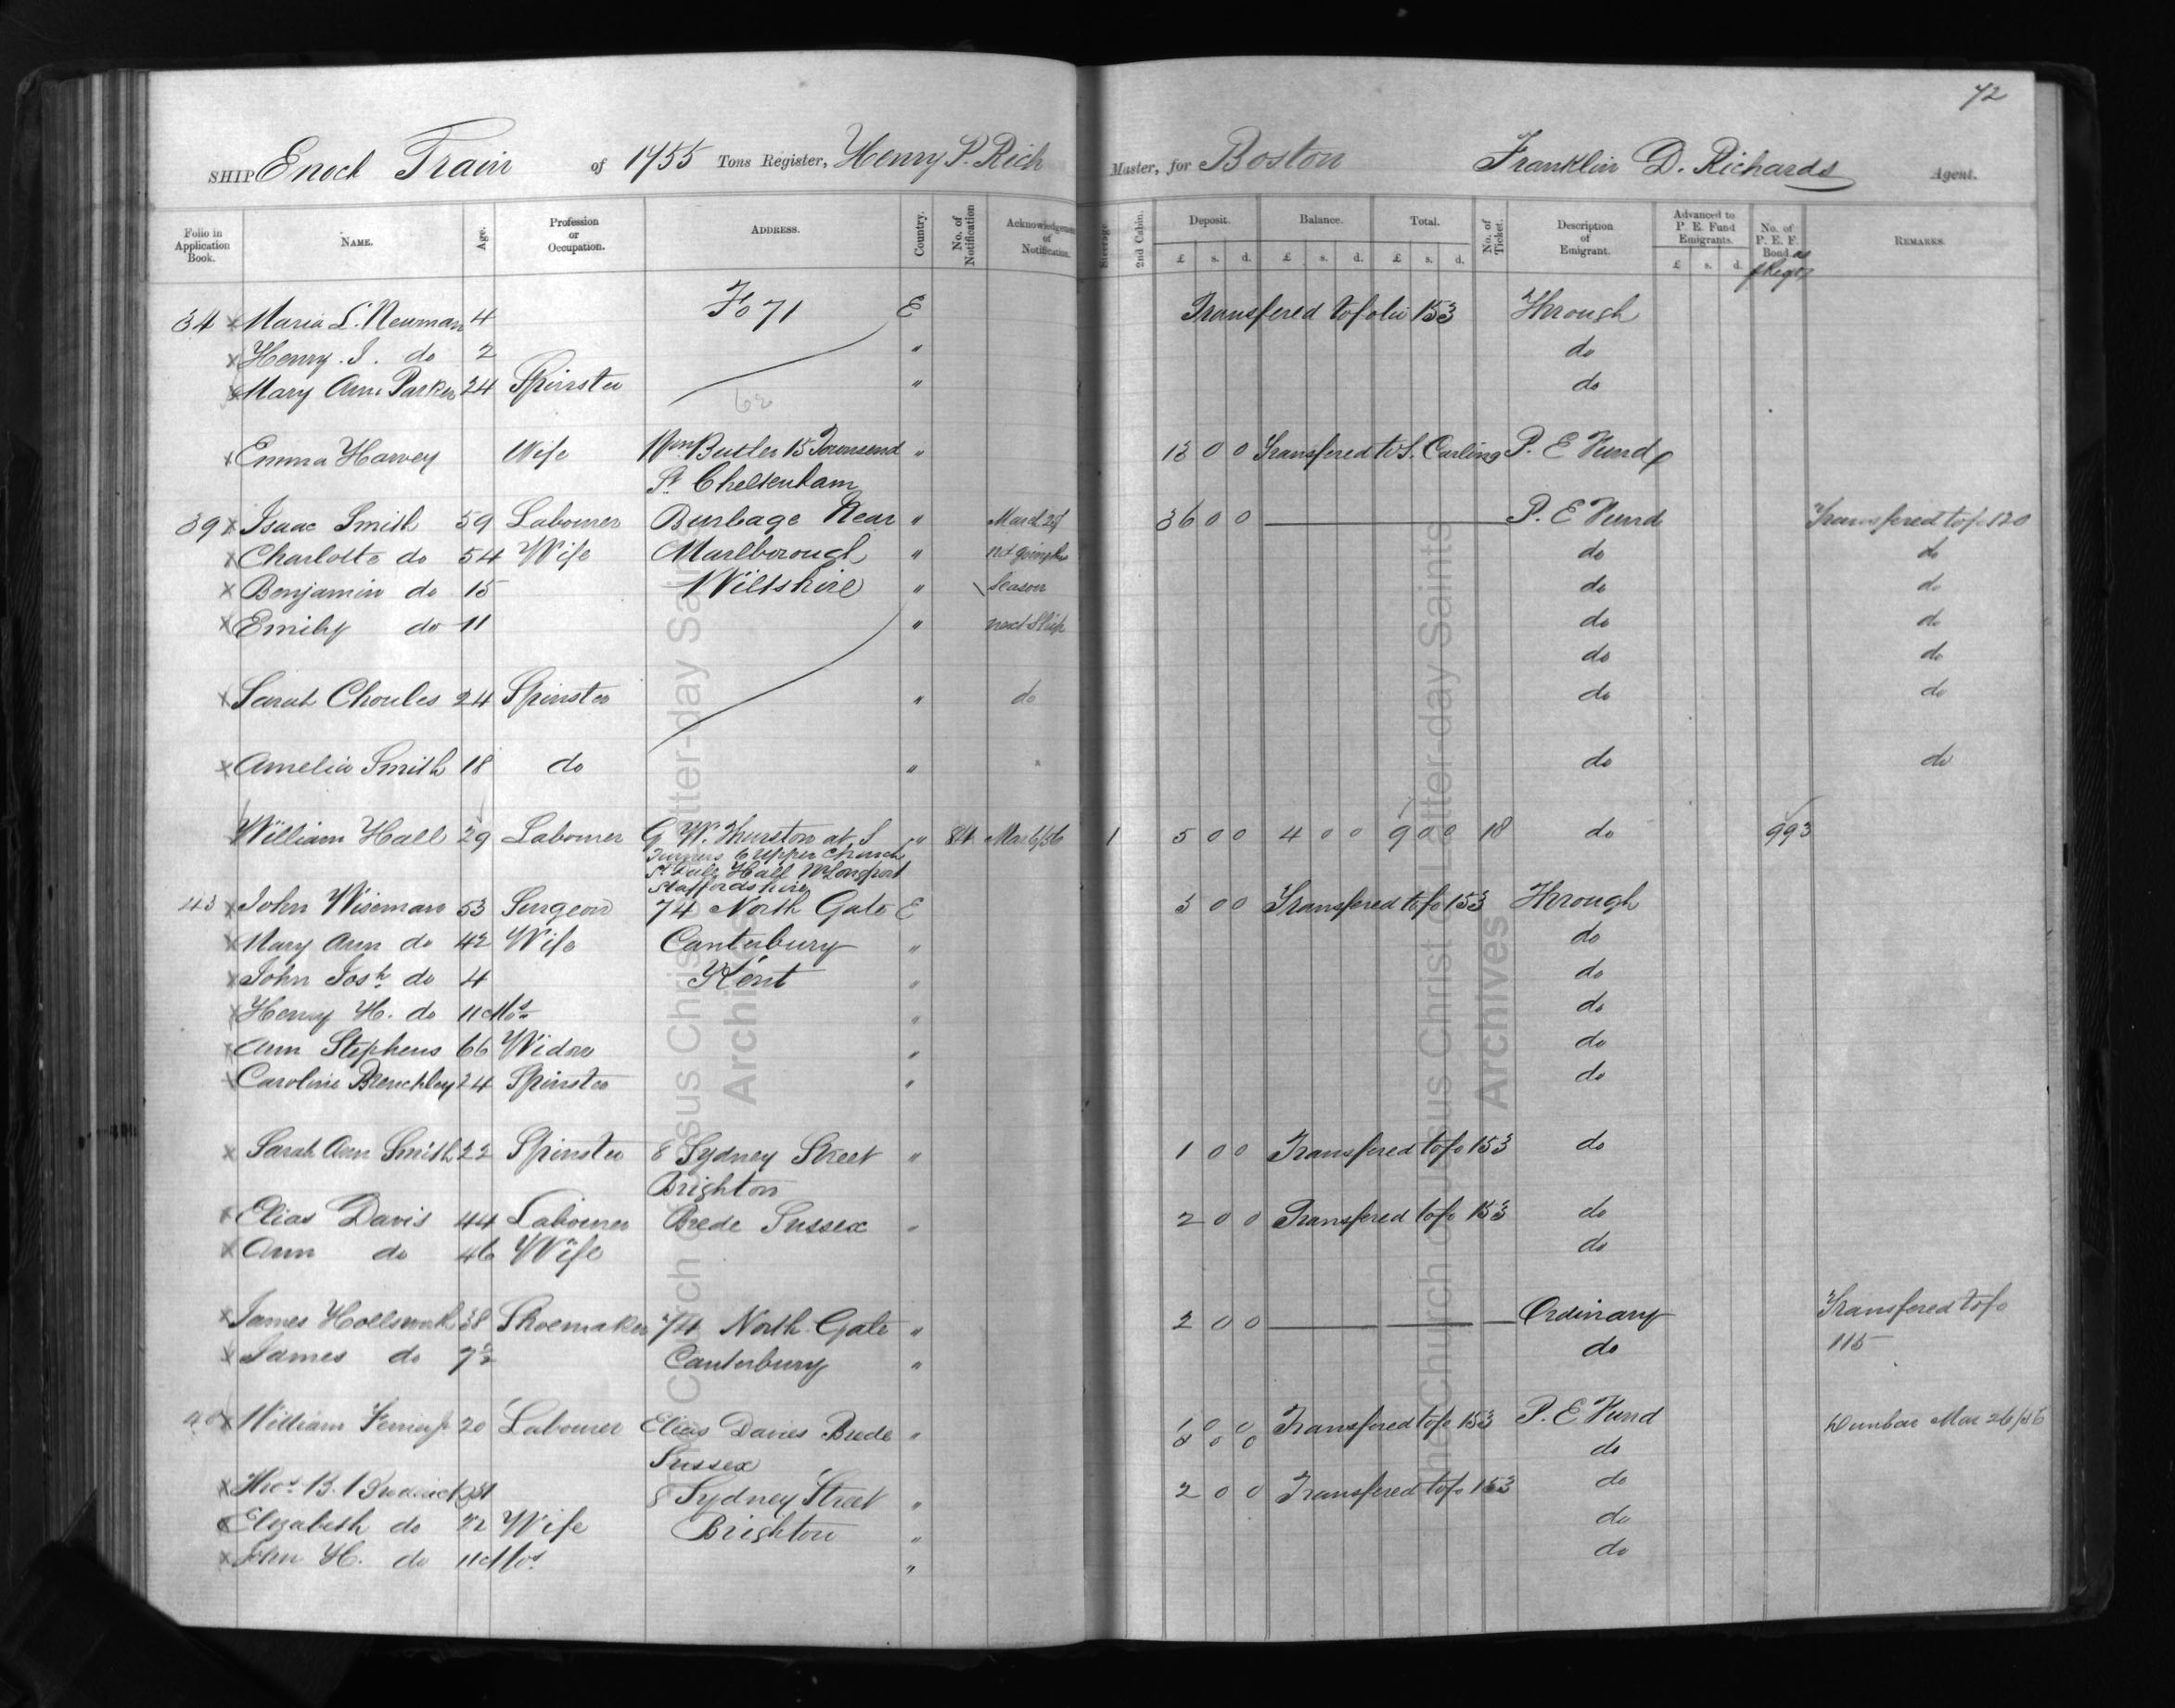 72
SHIP Enoch Train of 1455 Tons Register, Henry P. Rich Master, for Boston Franklin D. Richards Agent.
Folio in Application Book. NAME. Age. Profession or Occupation. ADDRESS. Country. No. of Notification Acknowledgement of Notification. Steerage 2nd Cabin. Deposit. £ s. d. Balance. £ s. d. Total. £ s. d. No. of Ticket. Description of Emigrant. Advanced to P. E. Fund Emigrants. £ s. d. No. of P. E. F. Bond REMARKS.
34 x Maria L. Neuman 4 Fo 71 E Transfered to folio 153 Through
x Henry . J . do 2 " do
x Mary Ann Parker 24 Spinster " do
62
x Emma Harvey Wife Wm Butler 15 Townsend " 13 0 0 Transfered to S. Carling P. E Fund
St Cheltenham
39 x Isaac Smith 59 Labourer Burbage Near " March 27 36 0 0 P. E Fund Transfered to fo 120
x Charlotte do 54 Wife Marlborough " not going this do do
x Benjamin do 15 Wiltshire " Season do do
x Emily do 11 " next Ship do do
do do
x Sarah Choules 24 Spinster " do do do
x Amelia Smith 18 do " " do do
William Hall 29 Labourer G W. Thurston at S " 84 Mar 6/56 1 5 0 0 4 0 0 9 0 0 18 do 993
Turners 6 Upper Church
St Hall Longport
Staffordshire
43 x John Wiseman 53 Surgeon 74 North Gate E 3 0 0 Transfered to fo 153 Through
x Mary Ann do 42 Wife Canterbury " do
x John Josh. do 4 Kent " do
x Henry H. do 11 Mos " do
x Ann Stephens 66 Widow " do
x Caroline Brenchley 24 Spinster " do
x Sarah Ann Smith 22 Spinster 8 Sydney Street " 1 0 0 Transfered to fo 153 do
Brighton
x Elias Davis 44 Labourer Brede Sussex " 2 0 0 Transfered to fo 153 do
x Ann do 46 Wife do
x James 38 Shoemaker 74 North Gate " 2 0 0 Ordinary Transfered to fo
x James do 7½ Canterbury " do 115
x William 20 Labourer Elias Davies Brede " 1 0 0 Transfered to fo 153 P. E Fund Dunbar Mar 26/56
Sussex 0 0 do
x Thos. B. 8 Sydney Street " 2 0 0 Transfered to fo 153 do
x Elizabeth do 22 Wife Brighton " do
x John H. do 11 Mos. " do
The Church of Jesus Christ of Latter-day Saints
Archives
The Church of Jesus Christ of Latter-day Saints
Archives